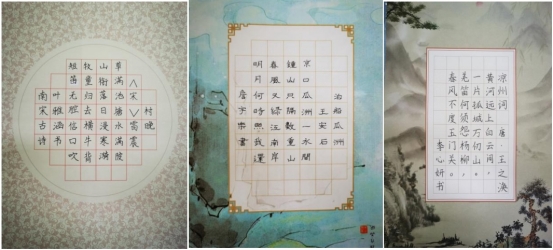 村晚
︿宋﹀雷震
草满池塘水满陂
山衔落日浸寒漪
牧童归去横牛背
短笛无腔信口吹
叶雅涵书
南宋古诗
泊船瓜洲
王安石
京口瓜洲一水間
鐘山只隔數重山
春風又綠江南岸
明月何時照我還
唐宇樂書
凉州词 唐·王之涣
黄河远上白云间，
一片孤城万仞山。
羌笛何须怨杨柳，
春风不度玉门关。
李心妍书